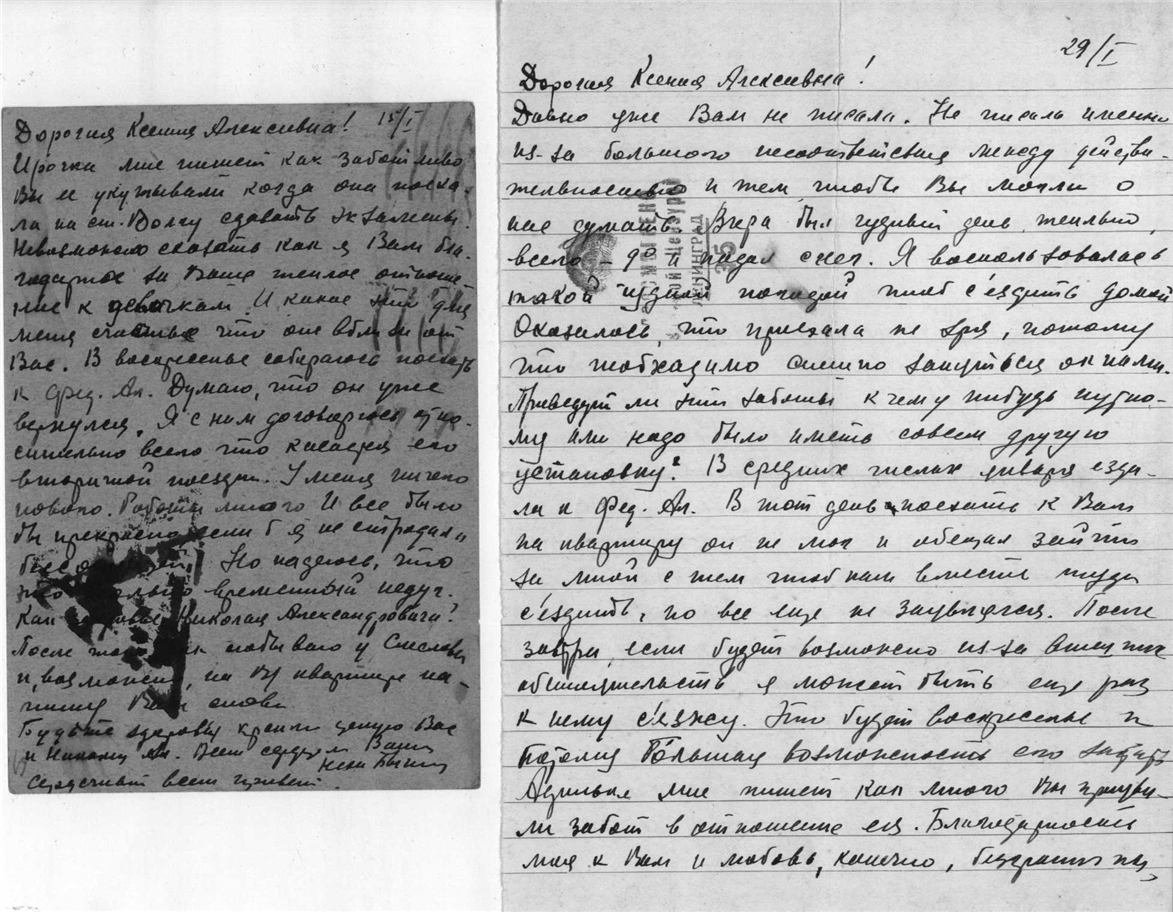 Дорогая Ксения Алексеевна! 15/I
Ирочка мне пишет как заботливо
Вы ее укутывали когда она поеха-
ла на ст. Волгу сдавать экзамены.
Невозможно сказать как я Вам бла-
годарна за Ваше теплое отноше-
ние к девочкам. И какое это для
меня счастье что они вблизи от
Вас. В воскресенье собираюсь поехать
к Фед. Ал. Думаю, что он уже
вернулся. Я с ним договорюсь отно-
сительно всего что касается его
вторичной поездки. У меня ничего
нового. Работы много И все было
бы прекрасно если б я не страдала
Но надеюсь, что
временный недуг.
Как Николая Александровича?
После побываю у
и, возможно, на В/ квартире на-
пишу Вам снова
Будьте здоровы крепко целую Вас
и Николая Ал. Всем сердцем Ваша
Сердечный всем привет.
29/I
Дорогая Ксения Алексеевна!
Давно уже Вам не писала. Не писала именно
из-за большого несоответствия между действи-
тельностью и тем чтобы Вы могли о
нас думать. Вчера был чудный день, теплый,
всего 9° и падал снег. Я воспользовалась
такой чудной погодой чтоб с'ездить домой
Оказалось, что приехала не зря, потому
что необходимо спешно заняться окнами.
Приведут ли эти заботы к чему нибудь путно-
му или надо было иметь совсем другую
установку? В средних числах января езди-
ла к Фед. Ал. В тот день поехать к Вам
на квартиру он не мог и обещал зайти
за мной с тем чтоб нам вместе туда
с'ездить, но все еще не заявился. После
завтра, если будет возможно из-за
обстоятельств я может быть еще раз
к нему с'езжу. Это будет воскресенье и
потому большая возможность его застать
мне пишет как много Вы прояви-
ли забот в отношение ея. Благодарность
моя к Вам и любовь, конечно, безграничны,
ЛЕНИНГРАД